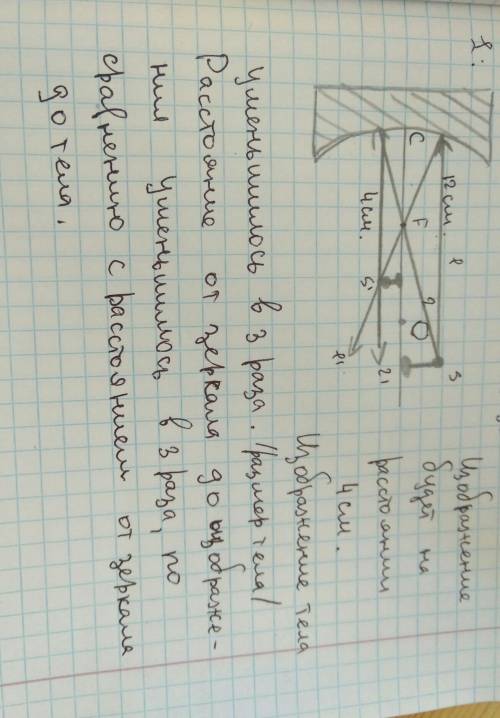 1:
C
12 см.
l
F
2
O
S
4 см.
S¹
2¹
l¹
Изображение
будет на
расстоянии
4 см.
Изображение тела
уменьшилось в 3 раза. /размер тела/
Расстояние от зеркала до изображе-
ния уменьшилось в 3 раза, по
сравнению с расстоянием от зеркала
до тела.